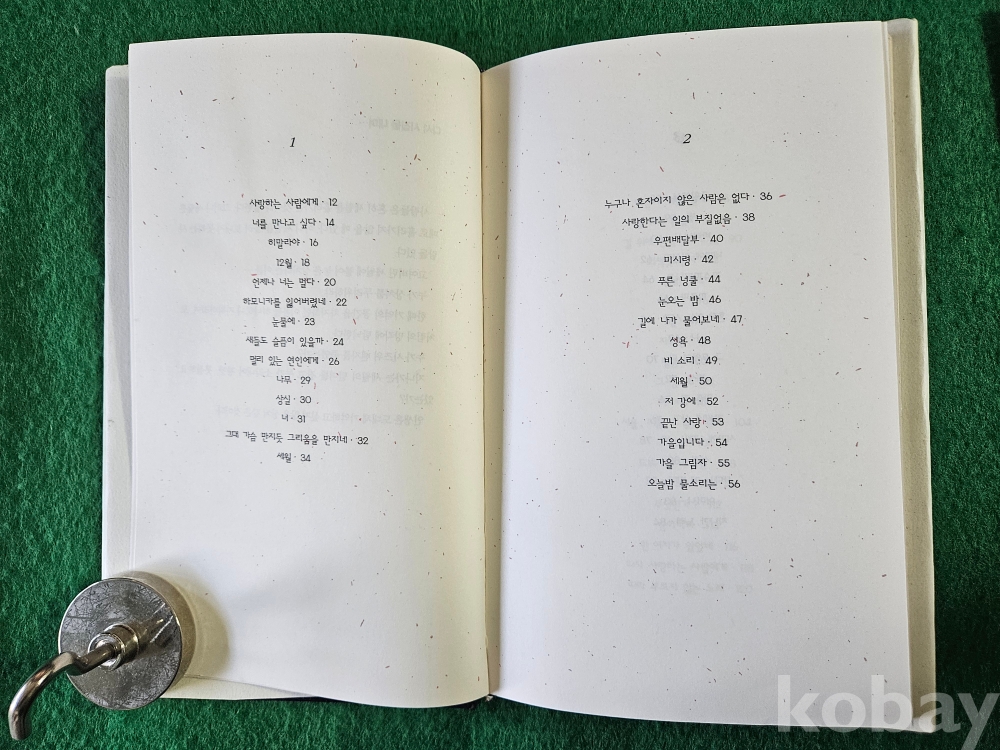 1
사랑하는 사람에게 · 12
너를 만나고 싶다 · 14
히말라야 · 16
12월 · 18
언제나 너는 멀다 · 20
하모니카를 잃어버렸네 · 22
눈물에 · 23
새들도 슬픔이 있을까 · 24
멀리 있는 연인에게 · 26
나무 · 29
상실 · 30
너 · 31
그대 가슴 만지듯 그리움을 만지네 · 32
세월 · 34
2
누구나 혼자이지 않은 사람은 없다 · 36
사랑한다는 일의 부질없음 · 38
우편배달부 · 40
미시령 · 42
푸른 넝쿨 · 44
눈오는 밤 · 46
길에 나가 물어보네 · 47
성욕 · 48
비 소리 · 49
세월 · 50
저 강에 · 52
끝난 사랑 · 53
가을입니다 · 54
가을 그림자 · 55
오늘밤 물소리는 · 56
kobay